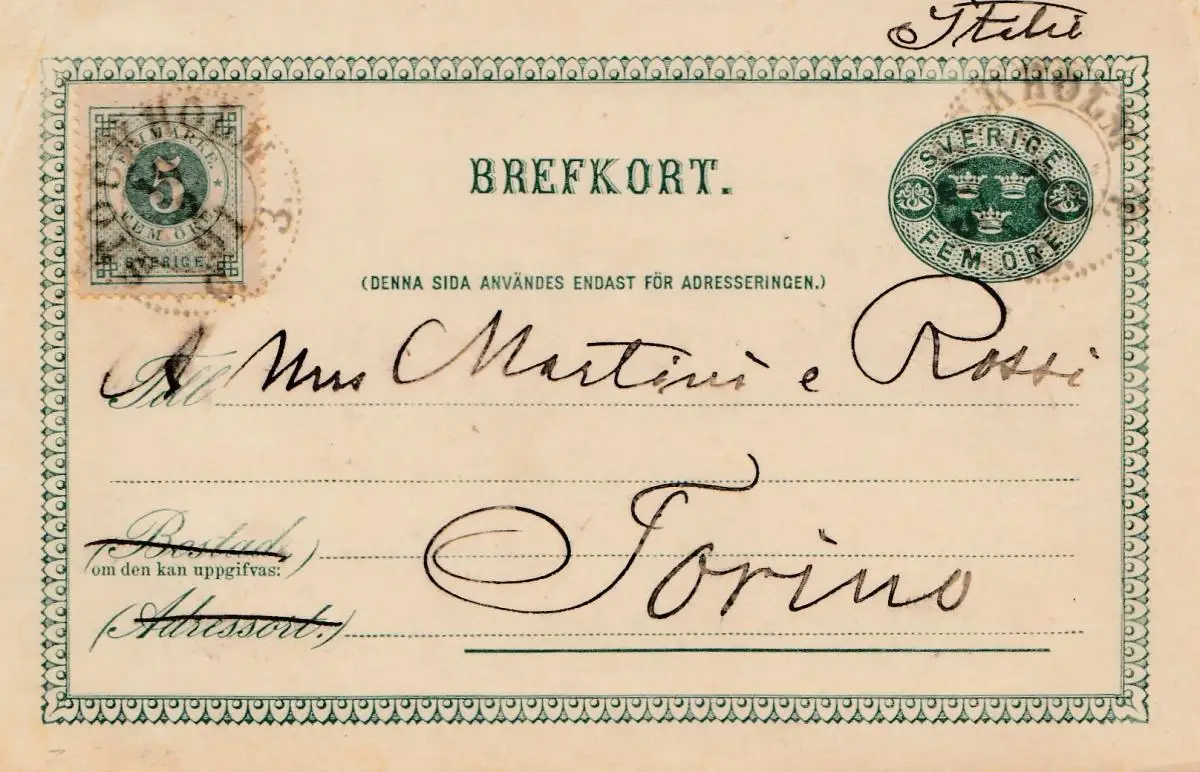 Italie
STOCKHOLM
3.
FRIMÄRKE
5
FEM ÖRE
SVERIGE
BREFKORT.
KHOLM
SVERIGE
FEM ÖRE
(DENNA SIDA ANVÄNDES ENDAST FÖR ADRESSERINGEN.)
Till
A Mrs Martini e Rossi
(Bostad,)
om den kan uppgifvas:
Torino
(Adressort.)